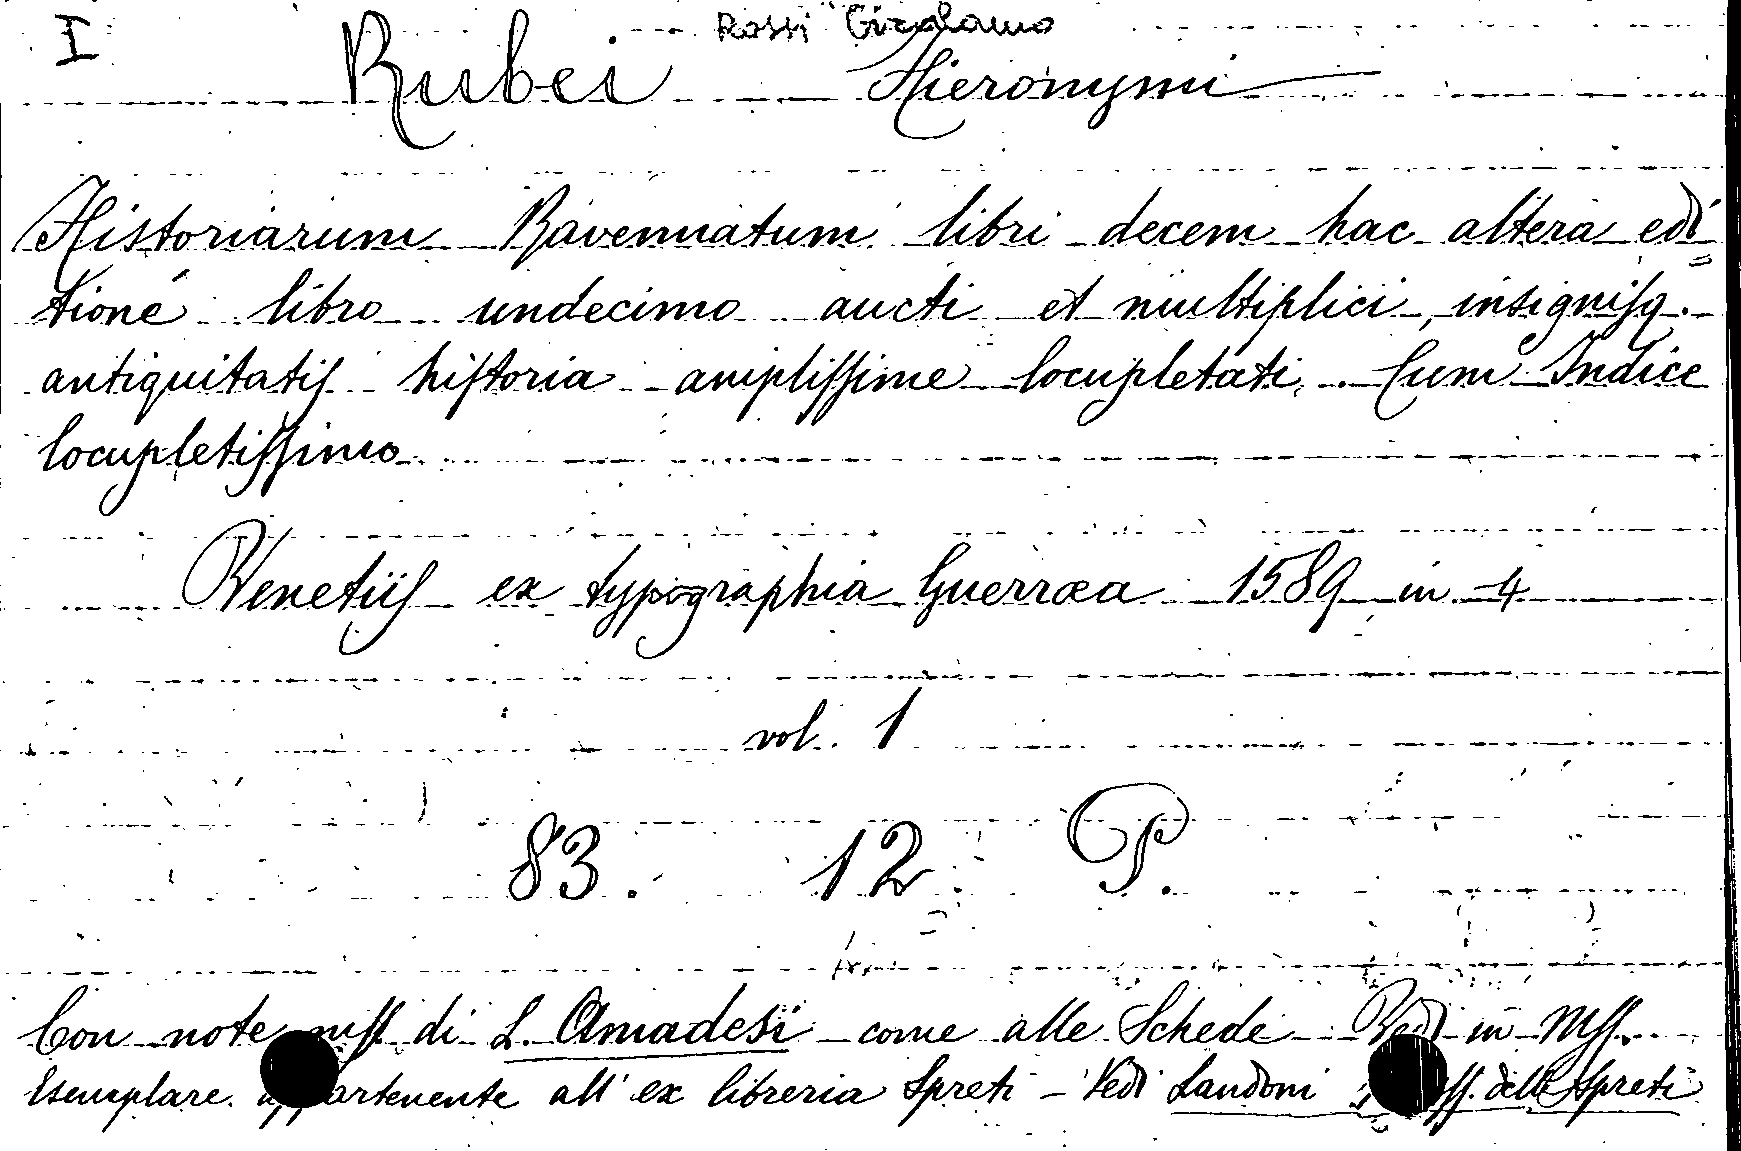 I
Rossi Girolamo
Rubei Hieronymi
Historiarum Ravennatum libri decem hac altera edi
tione libro undecimo aucti et multiplici, insignisq.
antiquitatis historia amplissime locupletati. Cum Indice
locupletissimo
Venetiis ex typographia Guerræa 1589 in 4
vol. 1
83. 12. P.
Con note mss di L. Amadesi come alle Schede Vedi in Mss.
Esemplare appartenente all' ex libreria Spreti - Vedi Landoni delle Spreti